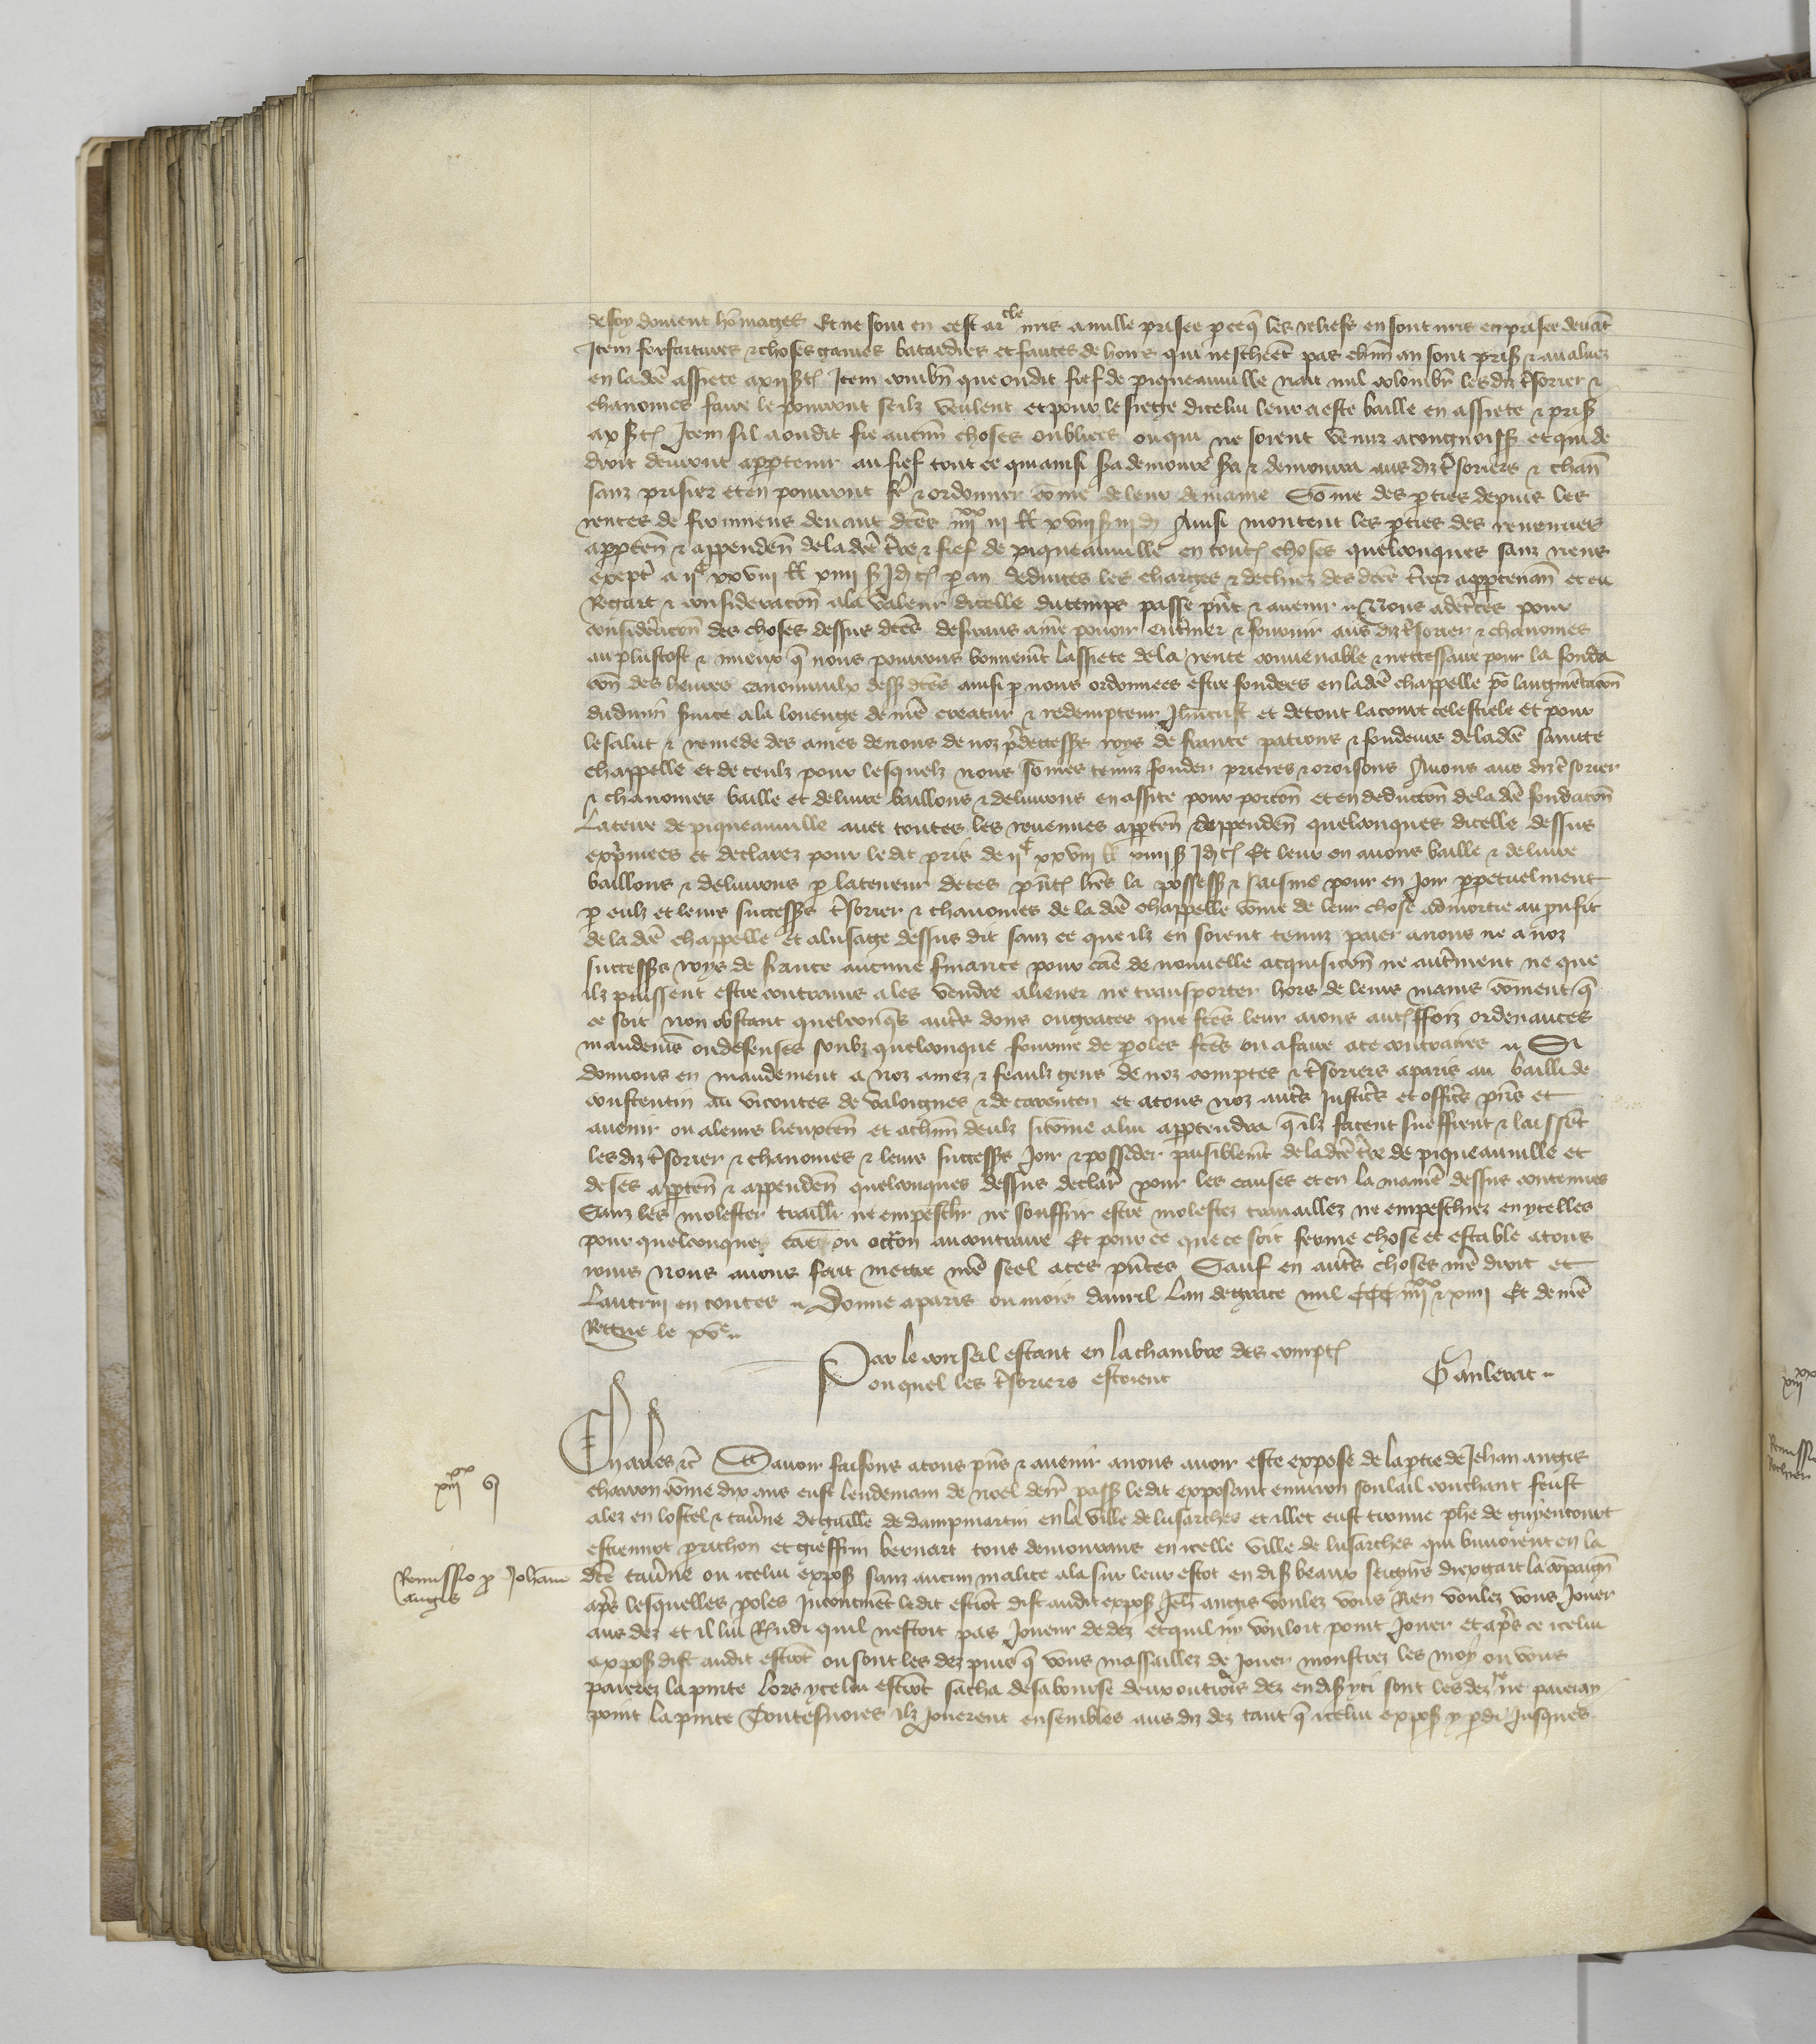 de foy doivent hōmages Et ne sont en cest arcle mis a nulle prisee p ce q̄ les reliefs en sont mis en prisee devāt
Item forfaitures & choses gaives batardies et fautes de hoirs qui neschéēt pas chūn an sont prisꝫ & avaluez
en ladcē assiete a xij s. t̄. Item combn̄ que ou dit fief de piqueauville nait nul colombr̄ les diz tsorier &
chanoines faire le pourront seilz veulent et pour le siege dicelui leur a este baille en assiete & prisꝫ
a x s. t̄. Item sil a ou dit fie aucun choses oubliees ou qui ne soient venuz a congnoissꝫ et qui de
droit deussont apptenir au fief tout ce qui ainsi sa demoure sa & demourra aus diz tsoriers & chan̄
sanz prisier et en pourront fe & ordonner cōme de leur demaine Sōme des pties depuis les
rentes de fromens devant dcēs iiijxx iij ll. xviij s. iij d. Ainsi montent les pties des revenues
apptēn & appendēn de ladcē tre & fief de piqueauville en toutꝭ choses quelconques sanz riens
excptē a ijc xxviij ll. xiiij s. j d. t̄. p an deduites les charges & dechiez des dcēs tres apptenan̄ et eu
Regart & consideracōn a la valeur dicelle du temps passe pn̄t & avenir .. Nous adcertes pour
consideracōn des choses dessus dcēs desirans a mē pouoir enteriner & fournir aus diz tsorier & chanoines
au plustost & mieux q̄ nous pourrons bonnemt lassiete de la rente convenable & necessaire pour la fonda
cōn des heures canoniaulx dessꝫ dcēs ainsi p nous ordonnees estre fondees en ladcē chappelle pō laugmētacōn
du divin svice a la louenge de nrē creatur & redempteur Jhūcrist et de tout la court celestiele et pour
le salut & remede des ames de nous de noz pdecessꝫs roys de france patrons & fondeurs de ladcē saincte
chappelle et de ceulx pour lesquelz nous sōmes tenuz fonder prieres & oroisons Avons aus diz tsorier
& chanoines baille et delivre baillons & delivrons en assiete pour porcōn et en deduccōn de ladcē fondacōn
La terre de piqueauville avec toutes les revenues apptēn & appendēn quelconques dicelle dessus
exprimees et declarez pour le dit pris de ijc xxviij ll. xiiij s. j d. t̄. Et leur en avons baille & delivre
baillons & delivrons p la teneur de ces pn̄tꝭ lrēs la possessꝫ & saisine pour en joir ppetuelment
p eulx et leurs successꝫs tsorier & chanoines de la dcē chappelle cōme de leur chose admortie au prufit
de la dcē chappelle et a lusage dessus dit sanz ce que ilz en soient tenuz paier a nous ne a noz
successꝫs roys de france aucune finance pour cāe de nouvelle acquisicōn ne autrment ne que
ilz puissent estre contrains a les vendre aliener ne transporter hors de leurs mains cōment q̄
ce soit Non obstant quelconqs autrs dons ou graces que fcēs leur aions autꝭffoiz ordenances
mandemēs ou defenses soubz quelconque fourme de poles fcēs ou a faire a ce contraires .. Si
donnons en mandement a noz amez & feaulx gens de noz comptes & tsoriers a paris au bailli de
coustentin au vicontes de valoignes & de carenten et a touz noz autrs justicrs et officrs pn̄s et
avenir ou a leurs lieuxtēn et a chūn deulz si cōme a lui apptendra q̄ ilz facent sueffrent & laissēt
les diz tsorier & chanoines & leurs successꝫs joir & posseder paisiblemt de ladcē tre de piqueauville et
de ses apptēn & appendēn quelconques dessus declar̄ pour les causes et en la manie dessus contenues
Sanz les molester travaillr ne empeschr ne souffrir estre molestez travaillez ne empeschiez en ycelles
pour quelconque cāe ou occōn au contraire Et pour ce que ce soit ferme chose et estable a touz
iours Nous avons fait mettre nrē seel a ces pn̄tes Sauf en autrs choses nrē droit et
Lautrui en toutes .. Donne a paris ou mois davril Lan de grace mil CCC iiijxx & xiiij Et de nrē
Regne le xve ..
Par le conseil estant en la chambre des comptꝭ
ouquel les tsoriers estoient
Canlerat ..
Charles &c Savoir faisons a touz pn̄s & avenir a nous avoir este expose de la ptie de Jehan angis
xiiijxx vj
charron cōme dix ans eust lendemain de noel derr̄ passꝫ ledit exposant environ soulail couchant feust
alez en lostel & tavne de guille de dampmartin en la ville de lusarches et illec eust trouve phe de guyencourt
estiennot prichon et gieffrin bernart touz demourans en icelle ville de lusarches qui buvoient en la
Remissio p Johanne
angis
dcē tavne ou icelui exposꝫ sanz aucun malice ala sur leur escot en disꝫ beaux seignrs dieu gart la cōpaign̄
aprs lesquelles poles Incontinēt ledit estiēn̄ dist audit exposꝫ Jeh̄ angis voulez vous Rien voulez vous Jouer
aus dez et il lui Rndi quil nestoit pas Joueur de dez et quil ny vouloit point Jouer Et aprs ce icelui
exposꝫ dist audit estiēn̄ ou sont les dez puis q̄ vous massaillez de jouer monstrez les moy ou vous
paierez la pinte Lors ycelui estiēn̄ sacha de sa bourse deux ou trois dez en disꝫ yci sont les dez je ne paieray
point la pinte Toutesvoies ilz jouerent ensembles aus diz dez tant q̄ icelui exposꝫ y pdi jusques